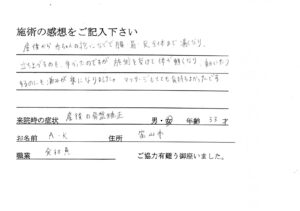 施術の感想をご記入下さい
産後から
立ち上がるのも、辛かったのですが 施術を受けて体が軽くなり、動いたり
するのにも痛みが楽になりました。マッサージもとても気持ちよかったです
来院時の症状 産後の骨盤矯正 男・女 年齢 33 才
お名前 A・K 住所 富山市
職業 会社員 ご協力有難う御座いました。